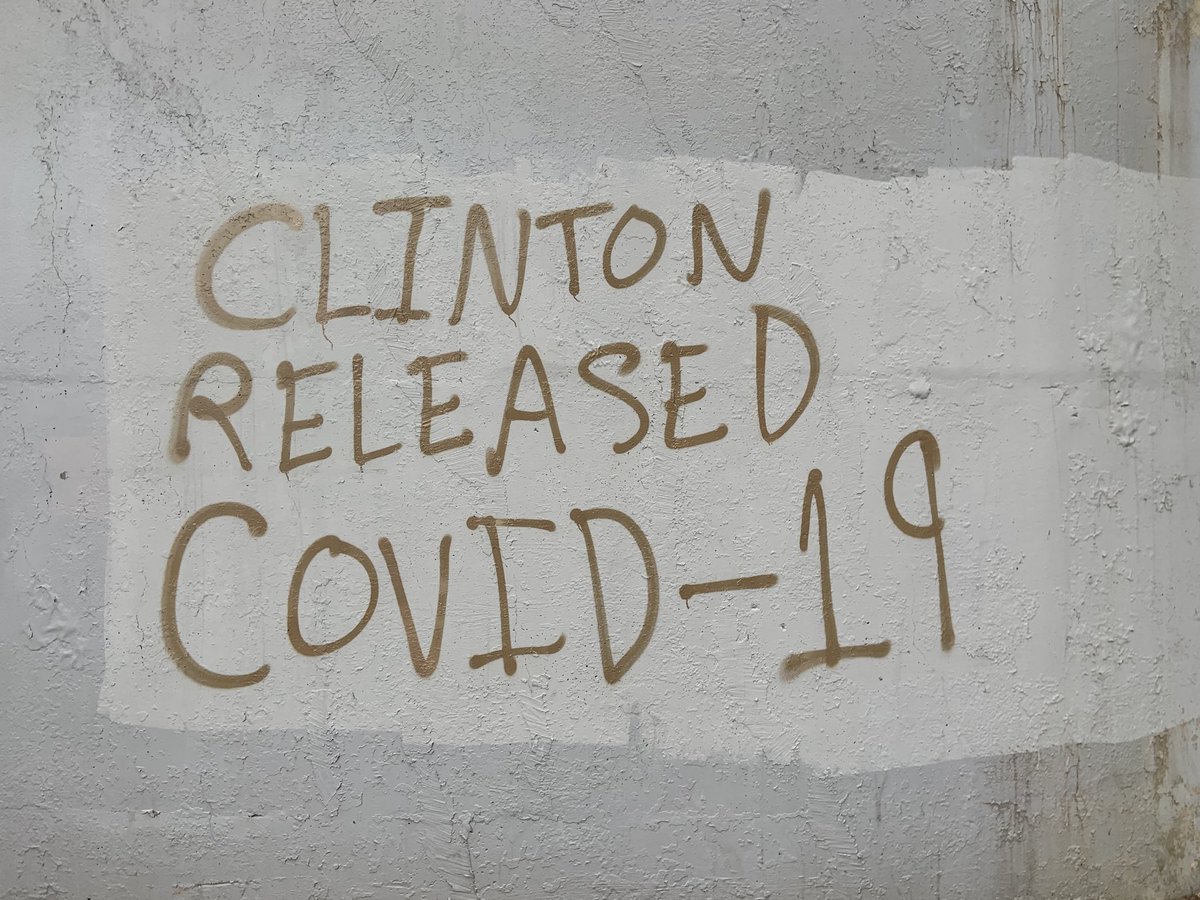 CLINTON
RELEASED
COVID-19